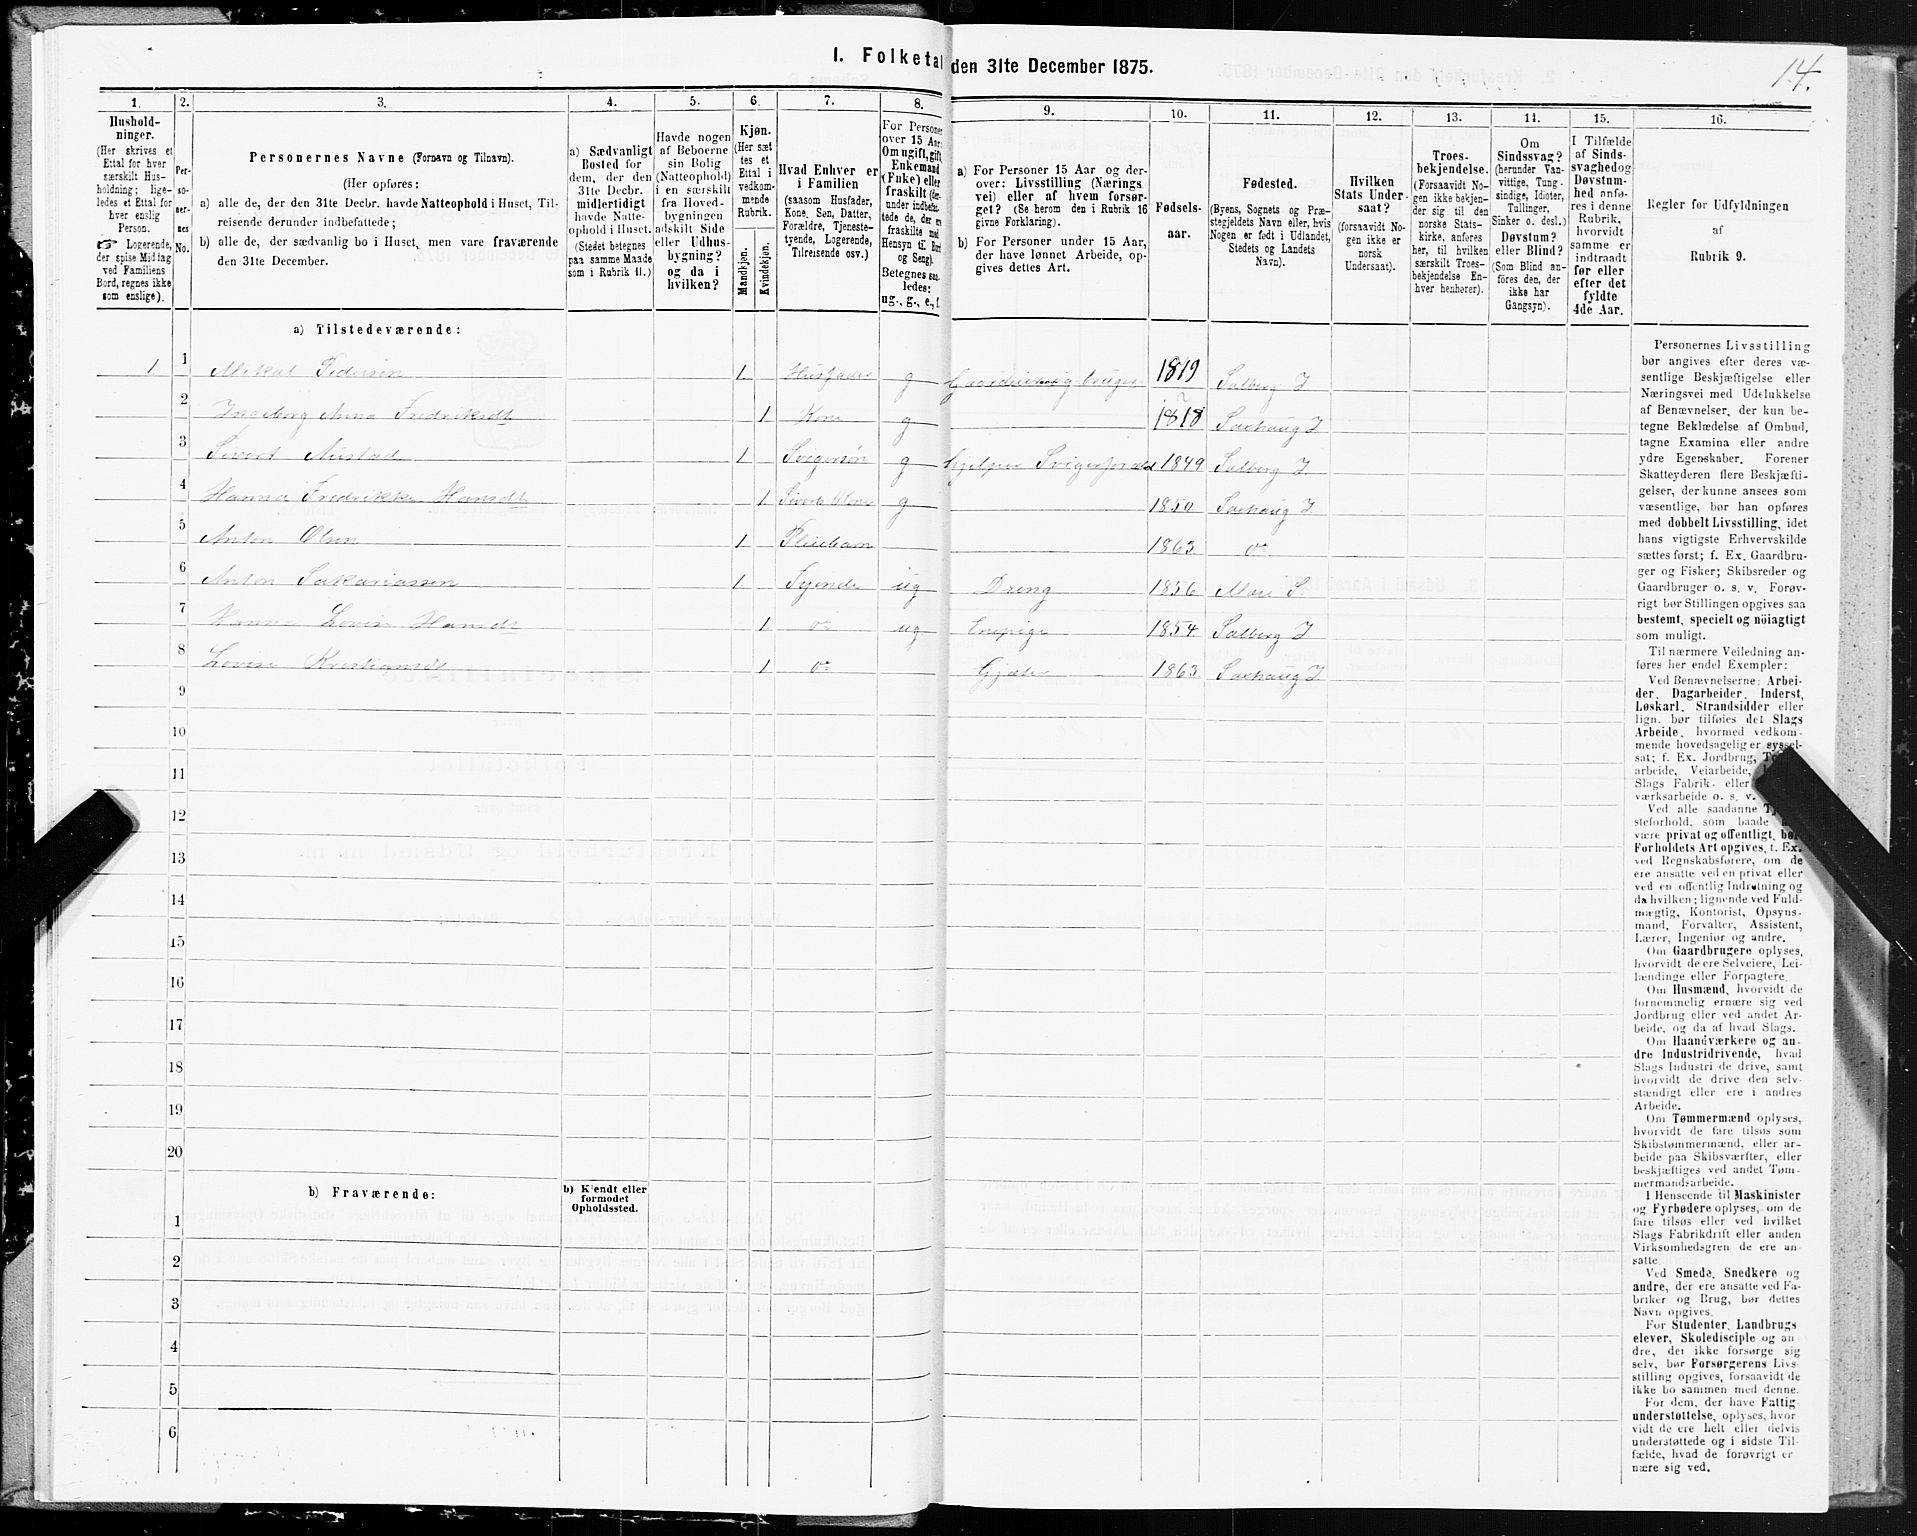 I. Folketal den 31te December 1875.
14.
1.
2.
3.
4.
5.
6.
7.
8.
9.
10.
11.
12.
13.
14.
15.
16.
Hushold-
ninger.
(Her skrives et
Ettal for hver
særskilt Hus-
holdning; lige-
ledes et Ettal for
hver enslig
Person.
☞ Logerende,
der spise Middag
ved Familiens
Bord, regnes ikke
som enslige).
Per-
so-
ner-
nes
No.
Personernes Navne (Fornavn og Tilnavn).
(Her opføres:
a) alle de, der den 31te Decbr. havde Natteophold i Huset, Til-
reisende derunder indbefattede;
b) alle de, der sædvanlig bo i Huset, men vare fraværende
den 31te December.
a) Sædvanligt
Bosted for
dem, der den
31te Decbr.
midlertidigt
havde Natte-
ophold i Huset.
(Stedet betegnes
paa samme Maade
som i Rubrik 11.)
Havde nogen
af Beboerne
sin Bolig
(Natteophold)
i en særskilt
fra Hoved-
bygningen
adskilt Side
eller Udhus-
bygning?
og da i
hvilken?
Kjøn.
(Her sæt-
tes et
Ettal i
vedkom-
mende
Rubrik.
Mandkjøn.
Kvindekjøn.
Hvad Enhver er
i Familien
(saasom Husfader,
Kone, Søn, Datter,
Forældre, Tjeneste-
tyende, Logerende,
Tilreisende osv.)
For Personer
over 15 Aar:
Om ugift, gift,
Enkemand
(Enke) eller
fraskilt (der-
under indbefat-
tede de, der ere
fraskilte med
Hensyn til Bord
og Seng).
Betegnes saa-
ledes:
ug., g., e., f.
a) For Personer 15 Aar og der-
over: Livsstilling (Nærings-
vei) eller af hvem forsør-
get? (Se herom den i Rubrik 16
givne Forklaring).
b) For Personer under 15 Aar,
der have lønnet Arbeide, op-
gives dettes Art.
Fødsels-
aar.
Fødested.
(Byens, Sognets og Præ-
stegjeldets Navn eller, hvis
Nogen er født i Udlandet,
Stedets og Landets
Navn).
Hvilken
Stats Under-
saat?
(forsaavidt No-
gen ikke er
norsk
Undersaat).
Troes-
bekjendelse.
(Forsaavidt No-
gen ikke bekjen-
der sig til den
norske Stats-
kirke, anføres
her, til hvilken
særskilt Troes-
bekjendelse En-
hver henhører).
Om
Sindssvag?
(herunder Van-
vittige, Tung-
sindige, Idioter,
Tullinger,
Sinker o. desl.)
Døvstum?
eller Blind?
(Som Blind an-
føres den, der
ikke har
Gangsyn).
I Tilfælde
af Sinds-
svaghed og
Døvstum-
hed anfø-
res i denne
Rubrik,
hvorvidt
samme er
indtraadt
før eller
efter det
fyldte
4de Aar.
Regler for Udfyldningen
af
Rubrik 9.
a) Tilstedeværende:
1 1 Mikal Pedersen 1 Husfader g Gaardeier og bruger 1819 Salberg I
2 Ingeborg Anna Fredriksdt 1 Kone g 1818 Saxhaug I
3 Sivert Austad 1 Svigersøn g hjelper Svigerforæld 1849 Salberg I
4 Hanna Fredrikke Hansdt 1 Siverts Kone g 1850 Saxhaug I
5 Anton Olsen 1 Pleiebarn 1863 do
6 Anton Sakariassen 1 Tyende ug Dreng 1856 Mære S.
7 Hanna Lovise Hansdt 1 do ug Indpige 1854 Salberg I
8 Lovise Kristiansdt 1 do Gjæter 1863 Saxhaug I
9
10
11
12
13
14
15
16
17
18
19
20
b) Fraværende:
b) Kjendt eller
formodet
Opholdssted.
1
2
3
4
5
6
Personernes Livsstilling
bør angives efter deres væ-
sentlige Beskjæftigelse eller
Næringsvei med Udelukkelse
af Benævnelser, der kun be-
tegne Beklædelse af Ombud,
tagne Examina eller andre
ydre Egenskaber. Forener
Skatteyderen flere Beskjæfti-
gelser, der kunne ansees som
væsentlige, bør han opføres
med dobbelt Livsstilling, idet
hans vigtigste Erhvervskilde
sættes først; f. Ex. Gaardbru-
ger og Fisker; Skibsreder og
Gaardbruger o. s. v. Forøv-
rigt bør Stillingen opgives saa
bestemt, specielt og nöiagtigt
som muligt.
Til nærmere Veiledning an-
føres her endel Exempler:
Ved Benævnelserne: Arbei-
der, Dagarbeider, Inderst,
Løskarl, Strandsidder eller
lign. bør tilføies det Slags
Arbeide, hvormed vedkom-
mende hovedsagelig er syssel-
sat; f. Ex. Jordbrug,
arbeide, Veiarbeide,
Slags Fabrik- eller
værksarbeide o. s. v.
Ved alle saadanne
steforhold, som baade
være privat og offentligt, bør
Forholdets Art opgives, t. Ex.
ved Regnskabsførere, om de
ere ansatte ved en privat eller
ved en offentlig Indretning og
da hvilken; lignende ved Fuld-
mægtig, Kontorist, Opsyns-
mand, Forvalter, Assistent,
Lærer, Ingeniør og andre.
Om Gaardbrugere oplyses,
hvorvidt de ere Selveiere, Lei-
lændinge eller Forpagtere.
Om Husmænd, hvorvidt de
fornemmelig ernære sig ved
Jordbrug eller ved andet Ar-
beide, og da af hvad Slags.
Om Haandværkere og an-
dre Industridrivende, hvad
Slags Industri de drive, samt
hvorvidt de drive den selv-
stændigt eller ere i andres
Arbeide.
Om Tømmermænd oplyses,
hvorvidt de fare tilsøs som
Skibstømmermænd, eller ar-
beide paa Skibsværfter, eller
beskjæftiges ved andet Tøm-
mermandsarbeide.
I Henseende til Maskinister
og Fyrbødere oplyses, om de
fare tilsøs eller ved hvilket
Slags Fabrikdrift eller anden
Virksomhedsgren de ere an-
satte.
Ved Smede, Snedkere og
andre, der ere ansatte ved Fa-
briker og Brug, bør dettes
Navn opgives.
For Studenter, Landbrugs-
elever, Skoledisciple og an-
dre, der ikke forsørge sig
selv, bør Forsørgerens Livs-
stilling opgives, forsaavidt de
ikke bo sammen med denne.
For dem, der have Fattig-
understøttelse, oplyses, hvor-
vidt de ere helt eller delvis
understøttede og i sidste Til-
fælde, hvad de forøvrigt er-
nære sig ved.